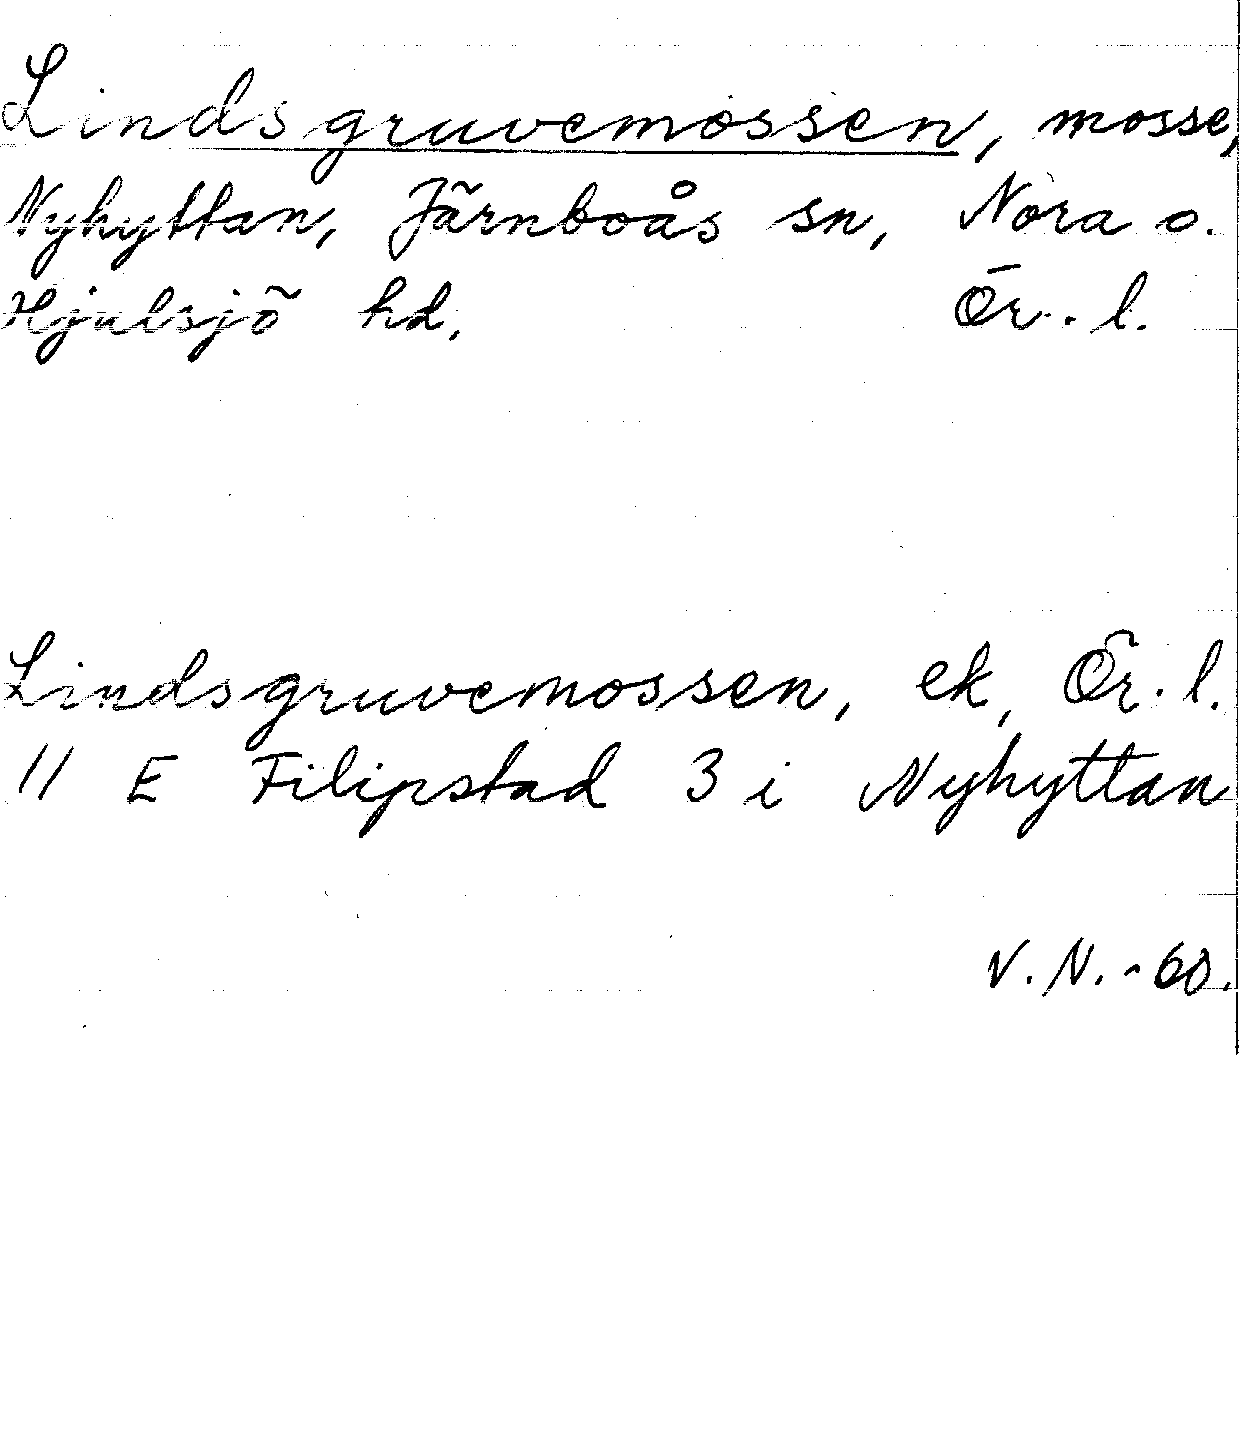 Lindsgruvemossen, mosse,
Nyhyttan, Järnboås sn, Nora o.
Hjulsjö hd. Ör. l.
Lindsgruvemossen, ek, Ör. l.
11 E Filipstad 3 i Nyhyttan
V.N. -60.